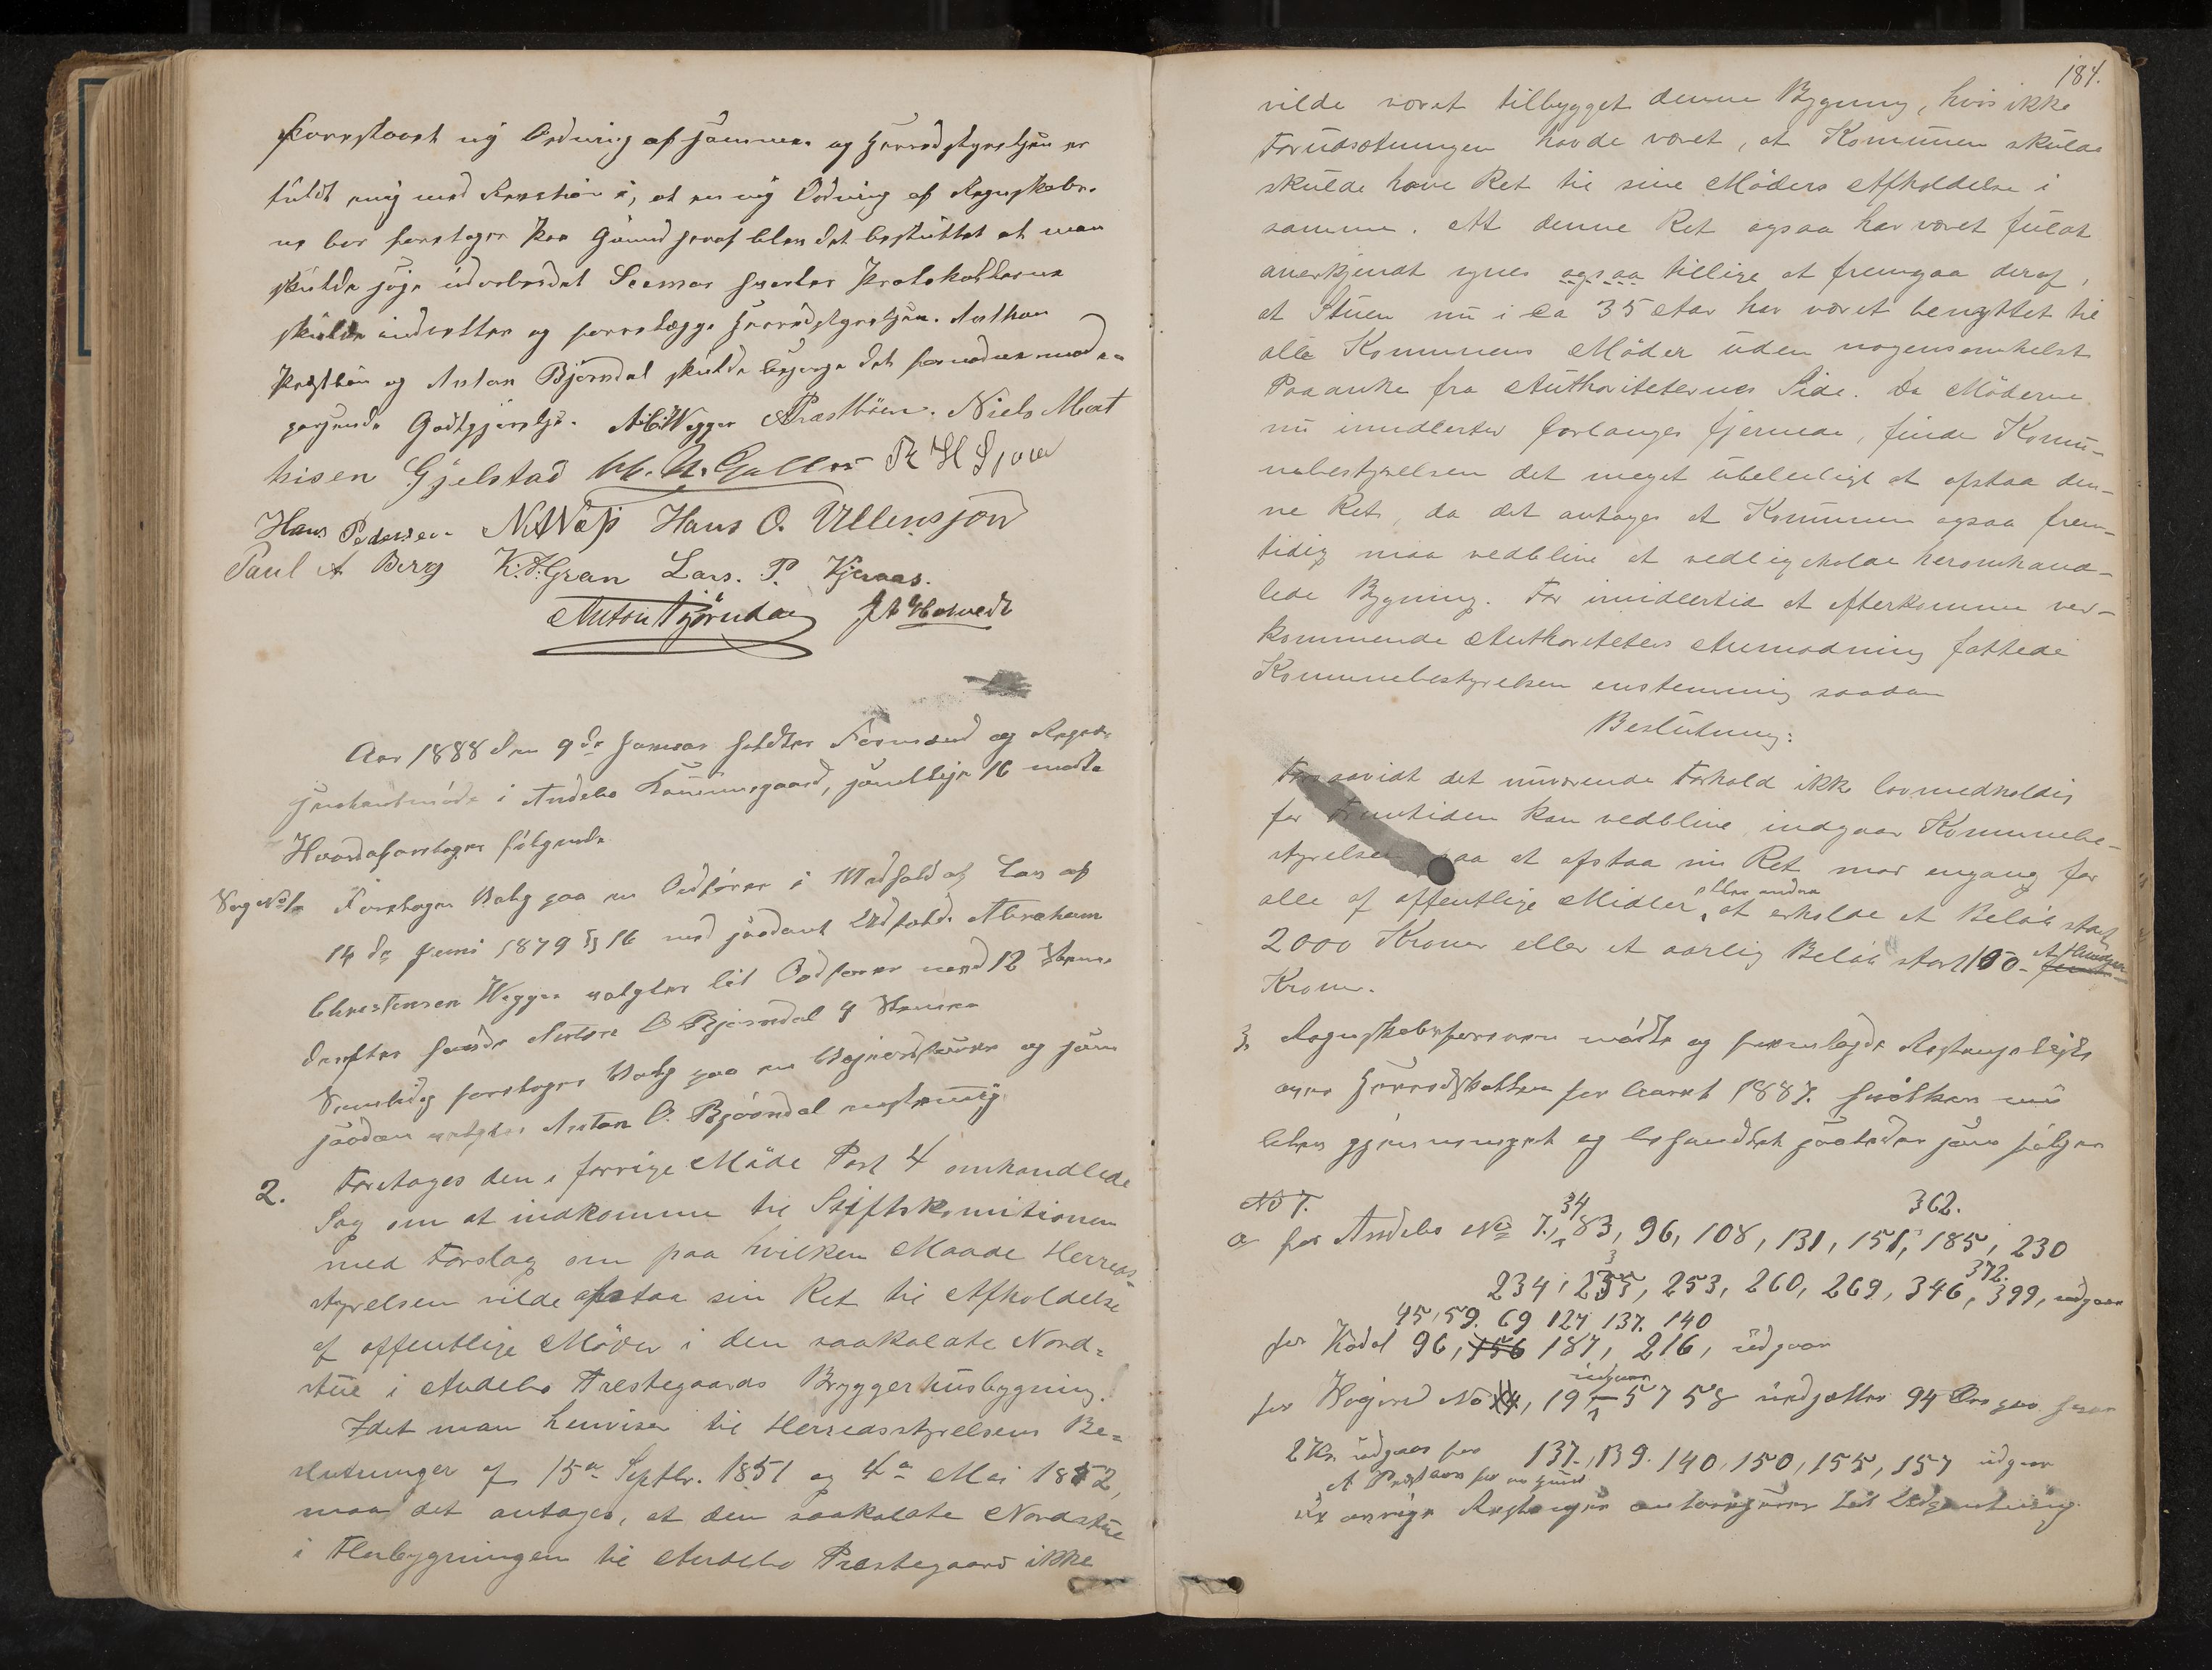 forestaaet ny Ordning af samme og Herredstyrelsen er
fuldt enig med Revision i, at en ny Ordning af Regnskaber-
ne bør foretages Paa Grund heraf blev det besluttet at man
skulde søge udarbeidet Skemar hvorler Protokollerne
skulde indrettes og forelægge Herredstyrelsen. Anthon
Præstbøen og Anton Bjørndal skulde besørge det fornødne mod
Godtgjørelse. A. C. Wegger APræstbøen. Niels Mat
hisen Gjelstad
Hans Pedersen. Hans O. Ullensjon
Paul A Berg K. A. Gran Lars. P. Kjeraas.
Anton Bjørndal
Aar 1888 den 9de Januar holdtes Formænd og Repræ-
sentantmøde i Andebo Kommunegaard, samtlige 16 mødte
Hvorda foretoges følgende
Sag No 1. Foretoges Valg paa en Ordfører i Medhold af Lov af
14 de Juni 1879 § 16 med saadant Udfald. Abraham
Christensen Wegger valgtes til Ordfører med 12 Stemmer
derefter havde Anton O Bjørndal 4 Stemmer
Samtidig foretoges Valg paa en Viceordfører og som
saadan valgtes Anton O. Bjørndal enstemmig
2. Foretoges den i forrige Møde Post 4 omhandlede
Sag om at indkomme til Stiftskomitionen
med Forslag om paa hvilken Maade Herreds-
styrelsen vilde afstaa sin Ret til Afholdelse
af offentlige Møder i den saakaldte Nord-
stue i Andebo Præstegaards Bryggerhusbygning.
Idet man henviser til Herredsstyrelsens Be-
slutninger af 15de Septbr. 1851 og 4de Mai 1852,
maa det antages, at den saakaldte Nordstue
i Florbygningen til Andebo Præstegaard ikke
184.
vilde været tilbygget denne Bygning, hvis ikke
Forudsætningen havde været, at Komunen skulde
skulde have Ret til sine Møders Afholdelse i
samme. At denne Ret ogsaa har været fuldt
anerkjendt synes ogsaa tillige at fremgaa deraf,
at Stuen nu i ca 35 Aar har været benyttet til
alle Komunens Møder uden nogensomhelst
Paaanke fra Authoriteternes Side. Da Møderne
nu imidlertid forlanges fjernede, finder Komu-
nebestyrelsen det meget ubeleiligt at afstaa den-
ne Ret, da det antages at Komunen ogsaa frem-
tidig maa vedblive at vedligeholde heromhand-
lede Bygning. For imidlertid at efterkomme ved-
kommende Authoriteters Anmodning fattede
Kommunebestyrelsen enstemmig saadan
Beslutning:
Forsaavidt det nuværende Forhold ikke lovmedholdig
for Fremtiden kan vedblive indgaar Komunebe-
styrelsen paa at afstaa sin Ret mod engang for
alle af offentlige Midler eller andre at erholde et Beløb stort
2000 Kroner eller et aarlig Beløb stort 100- et Hundrede
Kroner.
3 Regnskabsføreren mødte og fremlagde Restanseliste
over Herredskatten for Aaret 1887. hvilken nu
blev gjennemgaaet og behandlet saaledes som følger
No 7.
34 362.
a for Andebo No 7, 83, 96, 108, 131, 151, 185, 230
3 372.
234, 235, 253, 260, 269, 346, 399, udgaar
45, 59. 69 127 137. 140
for Kodal 96, 156 187, 216, udgaar
udgaar
for Høijord No 14, 19, 57 58 nedsættes 94 Øre
2 Kr. udgaar for 137., 139. 140, 150, 155, 157 udgaar
De øvrige Restanser Udpantning.